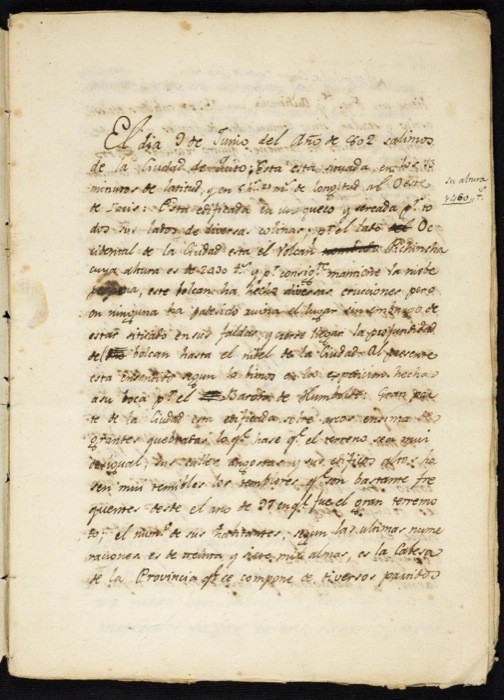 El dia 9 de Junio del Año de 802 salimos
de la Ciudad de Quito; Esta está situada en los 13
minutos de latitud, y en 5 h. 21 m.s de longitud al Oeste
de Paris: Esta edificada en un gueco y sircada p.r to
dos sus lados de diversas colinas, p.r el lado del Oc
cidental de la Ciudad esta el Volcán Pichincha
cuya altura es de 2430 t.s y p.r consig.te mantiene la nieve
este bolcan ha hecho diversas erucciones pero
en ninguna ha patesido ruina el lugar sin embargo de
estar sitiado en sus faldas, y de llegar la profundidad
de bolcan hasta el nivel de la Ciudad. Al presente
esta ensendido segun lo bimos en la espedicion hecha
a su boca p.r el Baron de Humboldt: Gran par
te de la Ciudad esta edificada sobre arcos ensima de
gigantes quebradas, lo q.e hase q.e el terreno sea mui
desigual, sus calles angostas y sus edifisios altos ha
sen mui temibles los temblores, q.e son bastante fre
quentes desde el año de 97 en q.e fue el gran terremo
to; el num.o de sus habitantes, segun las ultimas nume
raciones es de treinta y siete mil almas, es la Cabesa
de la Provincia q.e se compone de diversos partidos
su altura
1460 t.